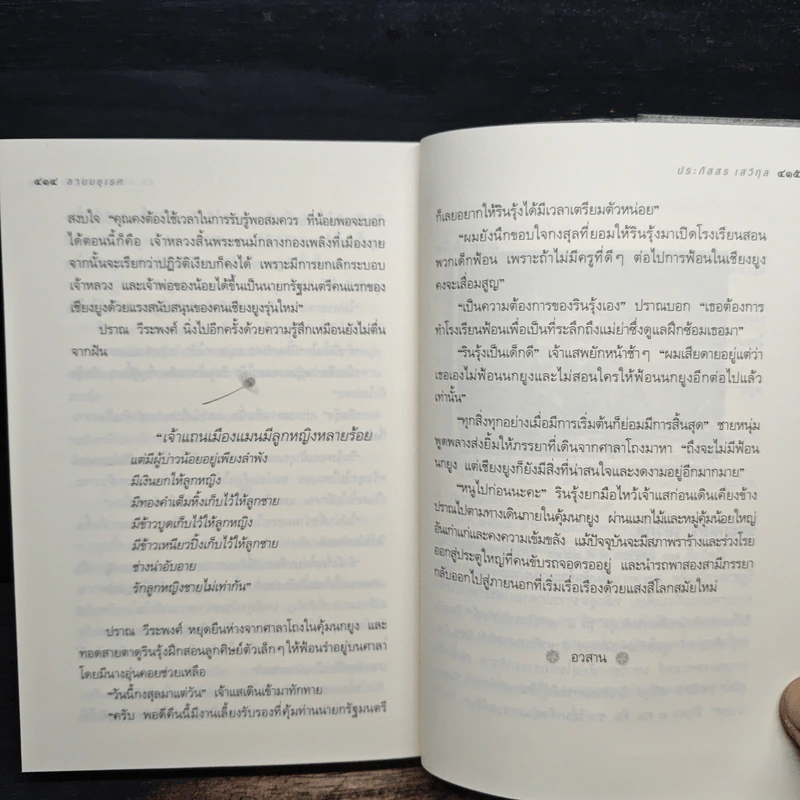 ๔๑๔ ลายมยุเรศ
สงบใจ “คุณคงต้องใช้เวลาในการรับรู้พอสมควร ที่น้อยพอจะบอก
ได้ตอนนี้ก็คือ เจ้าหลวงสิ้นพระชนม์กลางกองเพลิงที่เมืองงาย
จากนั้นจะเรียกว่าปฏิวัติเงียบก็คงได้ เพราะมีการยกเลิกระบอบ
เจ้าหลวง และเจ้าพ่อของน้อยได้ขึ้นเป็นนายกรัฐมนตรีคนแรกของ
เชียงยูงด้วยแรงสนับสนุนของคนเชียงยูงรุ่นใหม่”
ปราณ วีระพงศ์ นิ่งไปอีกครั้งด้วยความรู้สึกเหมือนยังไม่ตื่น
จากฝัน
“เจ้าแถนเมืองแมนมีลูกหญิงหลายร้อย
แต่มีผู้บ่าวน้อยอยู่เพียงลำพัง
มีเงินยกให้ลูกหญิง
มีทองคำเต็มหิ้งเก็บไว้ให้ลูกชาย
มีข้าวบูดเก็บไว้ให้ลูกหญิง
มีข้าวเหนียวปิ้งเก็บไว้ให้ลูกชาย
ช่างน่าอับอาย
รักลูกหญิงชายไม่เท่ากัน”
ปราณ วีระพงศ์ หยุดยืนห่างจากศาลาโถงในคุ้มนกยูง และ
ทอดสายตาดูรินรุ้งฝึกสอนลูกศิษย์ตัวเล็กๆ ให้ฟ้อนรำอยู่บนศาลา
โดยมีนางอุ่นคอยช่วยเหลือ
“วันนี้กงสุลมาแต่วัน” เจ้าแสเดินเข้ามาทักทาย
“ครับ พอดีคืนนี้มีงานเลี้ยงรับรองที่คุ้มท่านนายกรัฐมนตรี
ประภัสสร เสวิกุล ๔๑๕
ก็เลยอยากให้รินรุ้งได้มีเวลาเตรียมตัวหน่อย”
“ผมยังนึกขอบใจกงสุลที่ยอมให้รินรุ้งมาเปิดโรงเรียนสอน
พวกเด็กฟ้อน เพราะถ้าไม่มีครูที่ดีๆ ต่อไปการฟ้อนในเชียงยูง
คงจะเสื่อมสูญ”
“เป็นความต้องการของรินรุ้งเอง” ปราณบอก “เธอต้องการ
ทำโรงเรียนฟ้อนเพื่อเป็นที่ระลึกถึงแม่ย่าซึ่งดูแลฝึกซ้อมเธอมา”
“รินรุ้งเป็นเด็กดี” เจ้าแสพยักหน้าช้าๆ “ผมเสียดายอยู่แต่ว่า
เธอเองไม่ฟ้อนนกยูงและไม่สอนใครให้ฟ้อนนกยูงอีกต่อไปแล้ว
เท่านั้น”
“ทุกสิ่งทุกอย่างเมื่อมีการเริ่มต้นก็ย่อมมีการสิ้นสุด” ชายหนุ่ม
พูดพลางส่งยิ้มให้ภรรยาที่เดินจากศาลาโถงมาหา “ถึงจะไม่มีฟ้อน
นกยูง แต่เชียงยูงก็ยังมีสิ่งที่น่าสนใจและงดงามอยู่อีกมากมาย”
“หนูไปก่อนนะคะ” รินรุ้งยกมือไหว้เจ้าแสก่อนเดินเคียงข้าง
ปราณไปตามทางเดินภายในคุ้มนกยูง ผ่านแมกไม้และหมู่คุ้มน้อยใหญ่
อันเก่าแก่และคงความเข้มขลัง แม้ปัจจุบันจะมีสภาพร้างและร่วงโรย
ออกสู่ประตูใหญ่ที่คนขับรถจอดรออยู่ และนำรถพาสองสามีภรรยา
กลับออกไปสู่ภายนอกที่เริ่มเรื่อเรืองด้วยแสงสีโลกสมัยใหม่
อวสาน